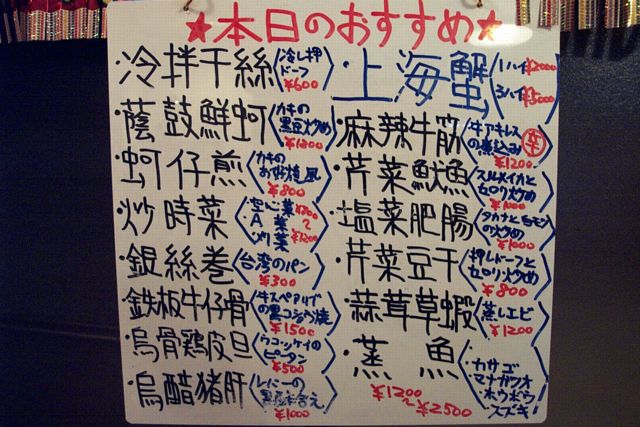 ★本日のおすすめ★
・冷拌干絲 冷し押ドーフ ¥600
・蔭鼓鮮蚵 カキの黒豆炒め ¥1200
・蚵仔煎 カキのお好焼風 ¥800
・炒時菜 空心菜 A菜
・銀絲巻 台湾のパン ¥300
・鉄板牛仔骨 牛スペアリブの黒コショウ焼 ¥1500
・烏骨鶏皮旦 ウコッケイのピータン ¥500
・烏醋猪肝 レバーの ¥1000
・上海蟹 1ハイ¥2000 3ハイ¥5000
・麻辣牛筋 牛アキレスの煮込み 辛 ¥1200
・芹菜魷魚 スルメイカとセロリ炒め ¥1000
・塩菜肥腸 タカナと白モツの炒め ¥1000
・芹菜豆干 押しドーフとセロリ炒め ¥800
・蒜茸草蝦 蒸しエビ ¥1200
・蒸魚 カサゴ マナガツオ ホウボウ スズキ ¥1200〜¥2500